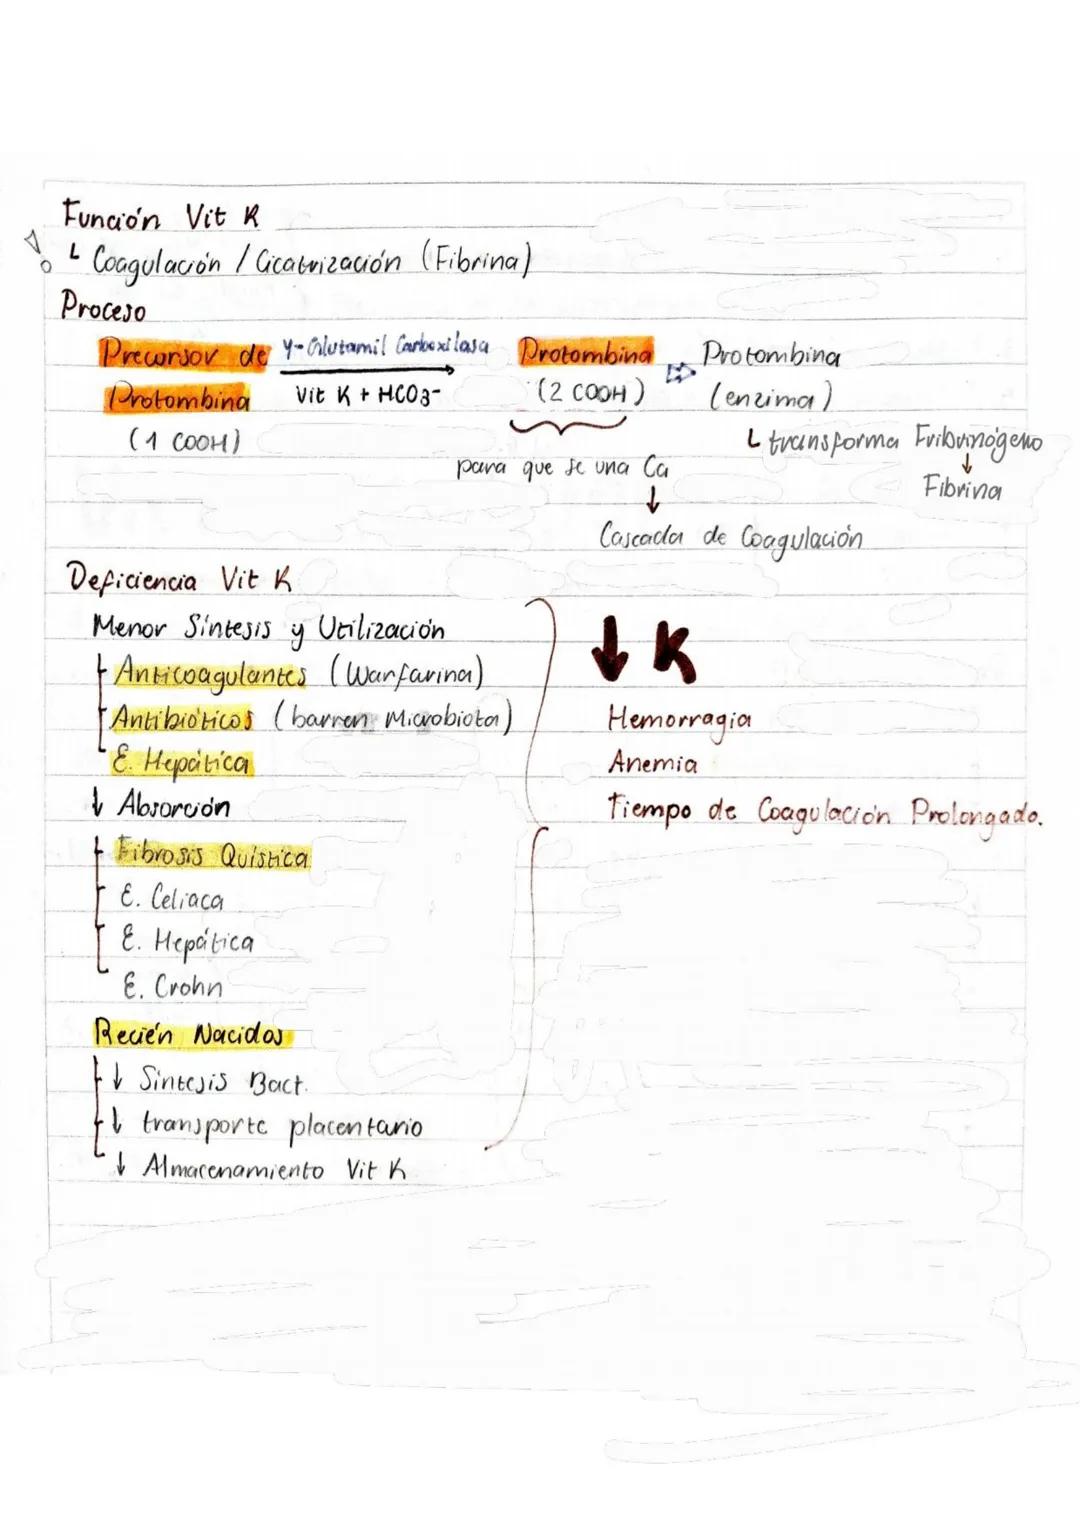 Función Vit K
Coagulación / Cicatrización (Fibrina)
Proceso
Precursor de Protombina (1 COOH)
γ-Glutamil Carboxilasa
Vit K + HCO3-
Protombina (2 COOH)
Protombina (enzima)
transforma Fribrinógeno
Fibrina
para que se una Ca
↓
Cascada de Coagulación
Deficiencia Vit K
Menor Síntesis y Utilización
Anticoagulantes (Warfarina)
Antibióticos (barren Microbiota)
E. Hepática
↓ Absorción
Fibrosis Quística
E. Celiaca
E. Hepática
E. Crohn
Recién Nacidos
↓ Síntesis Bact.
↓ transporte placentario
↓ Almacenamiento Vit K
↓ K
Hemorragia
Anemia
Tiempo de Coagulación Prolongado.